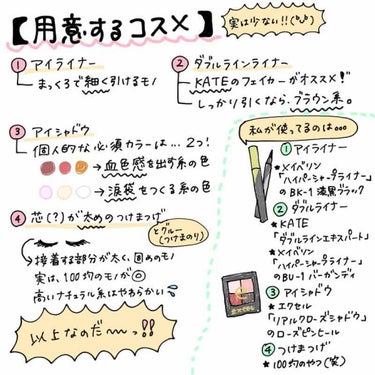 【用意するコスメ】
実は少ない!!
① アイライナー
まっくろで細く引けるモノ
② ダブルラインライナー
KATEのフェイカーがオススメ!
しっかり引くなら、ブラウン系。
③ アイシャドウ
個人的な必須カラーは…2つ!
→血色感を出す系の色
→涙袋をつくる系の色
④ 芯(?)が太めのつけまつげ
とグルー
(つけまのり)
接着する部分が太く、固めのモノ
実は、100均のモノが◎
高いナチュラル系はやわらかい
以上なのだ〜〜っ!!
私が使ってるのは…
① アイライナー
★メイベリン
「ハイパーシャープライナー」
のBK-1 漆黒ブラック
② ダブルライナー
★KATE
「ダブルラインエキスパート」
★メイベリン
「ハイパーシャープライナー」
のBU-1 バーガンディ
③ アイシャドウ
★エクセル
「リアルクローズシャドウ」
のローズピンヒール
④ つけまつげ
★100均のやつ(笑)
excel